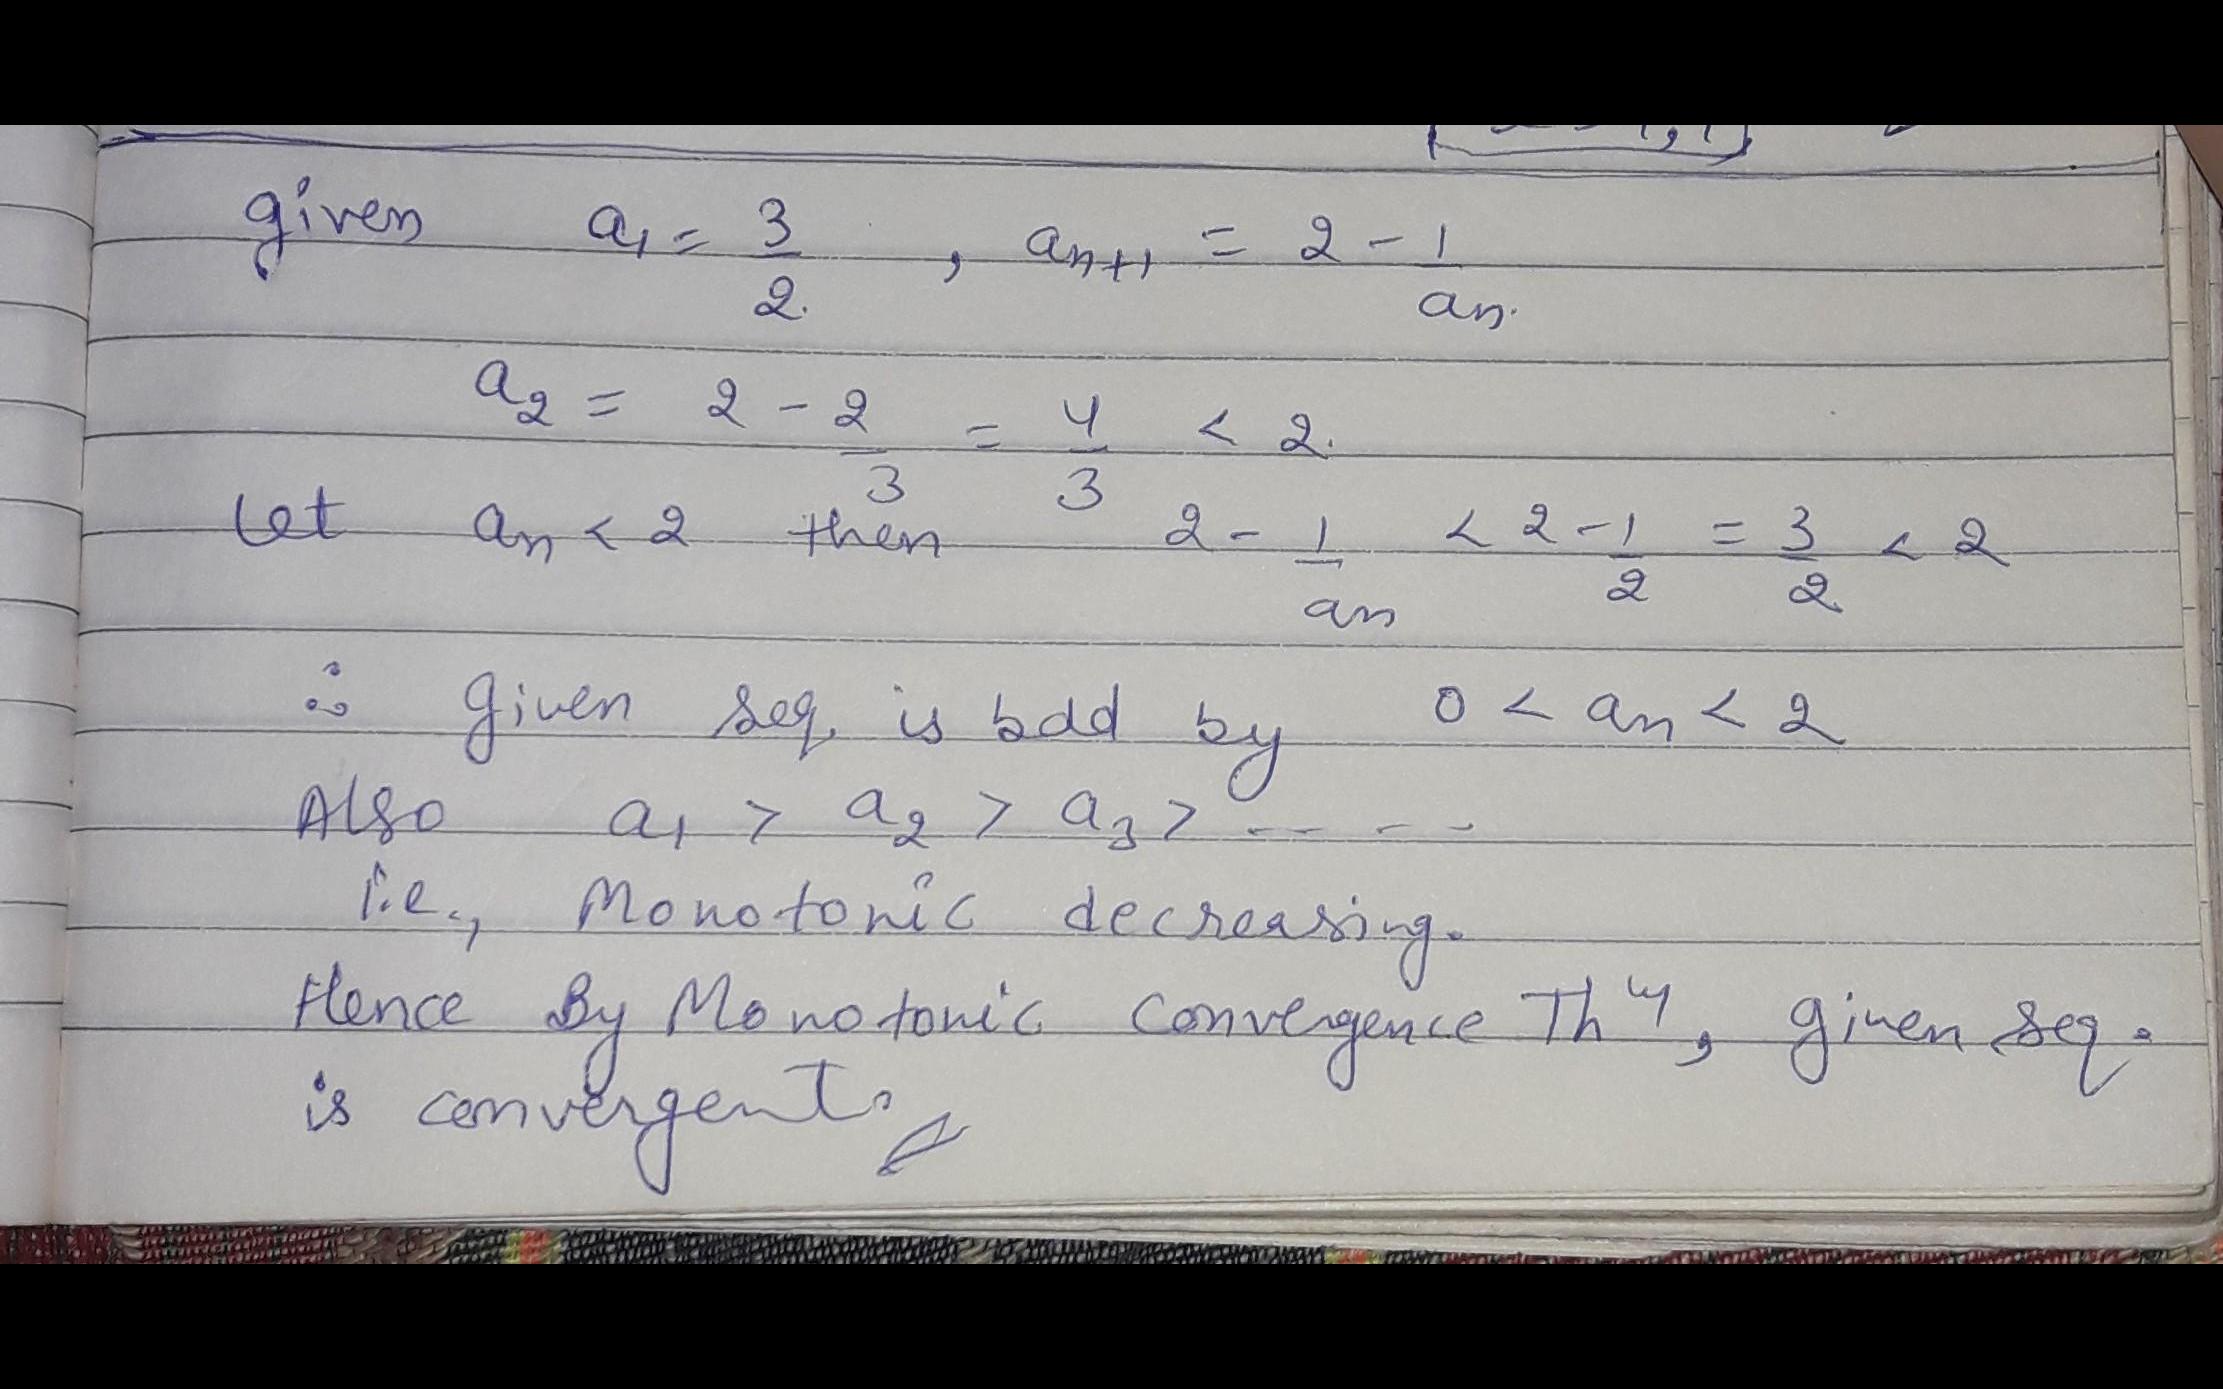 given a₁ = 3/2 , aₙ₊₁ = 2 - 1/aₙ.
a₂ = 2 - 2/3 = 4/3 < 2.
Let aₙ < 2 then 2 - 1/aₙ < 2 - 1/2 = 3/2 < 2
∴ given seq. is bdd by 0 < aₙ < 2
Also a₁ > a₂ > a₃ > - - - - -
i.e., Monotonic decreasing.
Hence By Monotonic Convergence Thᵐ, given seq.
is convergent.